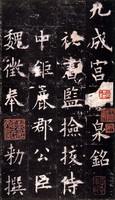 九成宮醴泉銘
秘書監撿挍侍
中鉅鹿郡公臣
魏徵奉勅撰